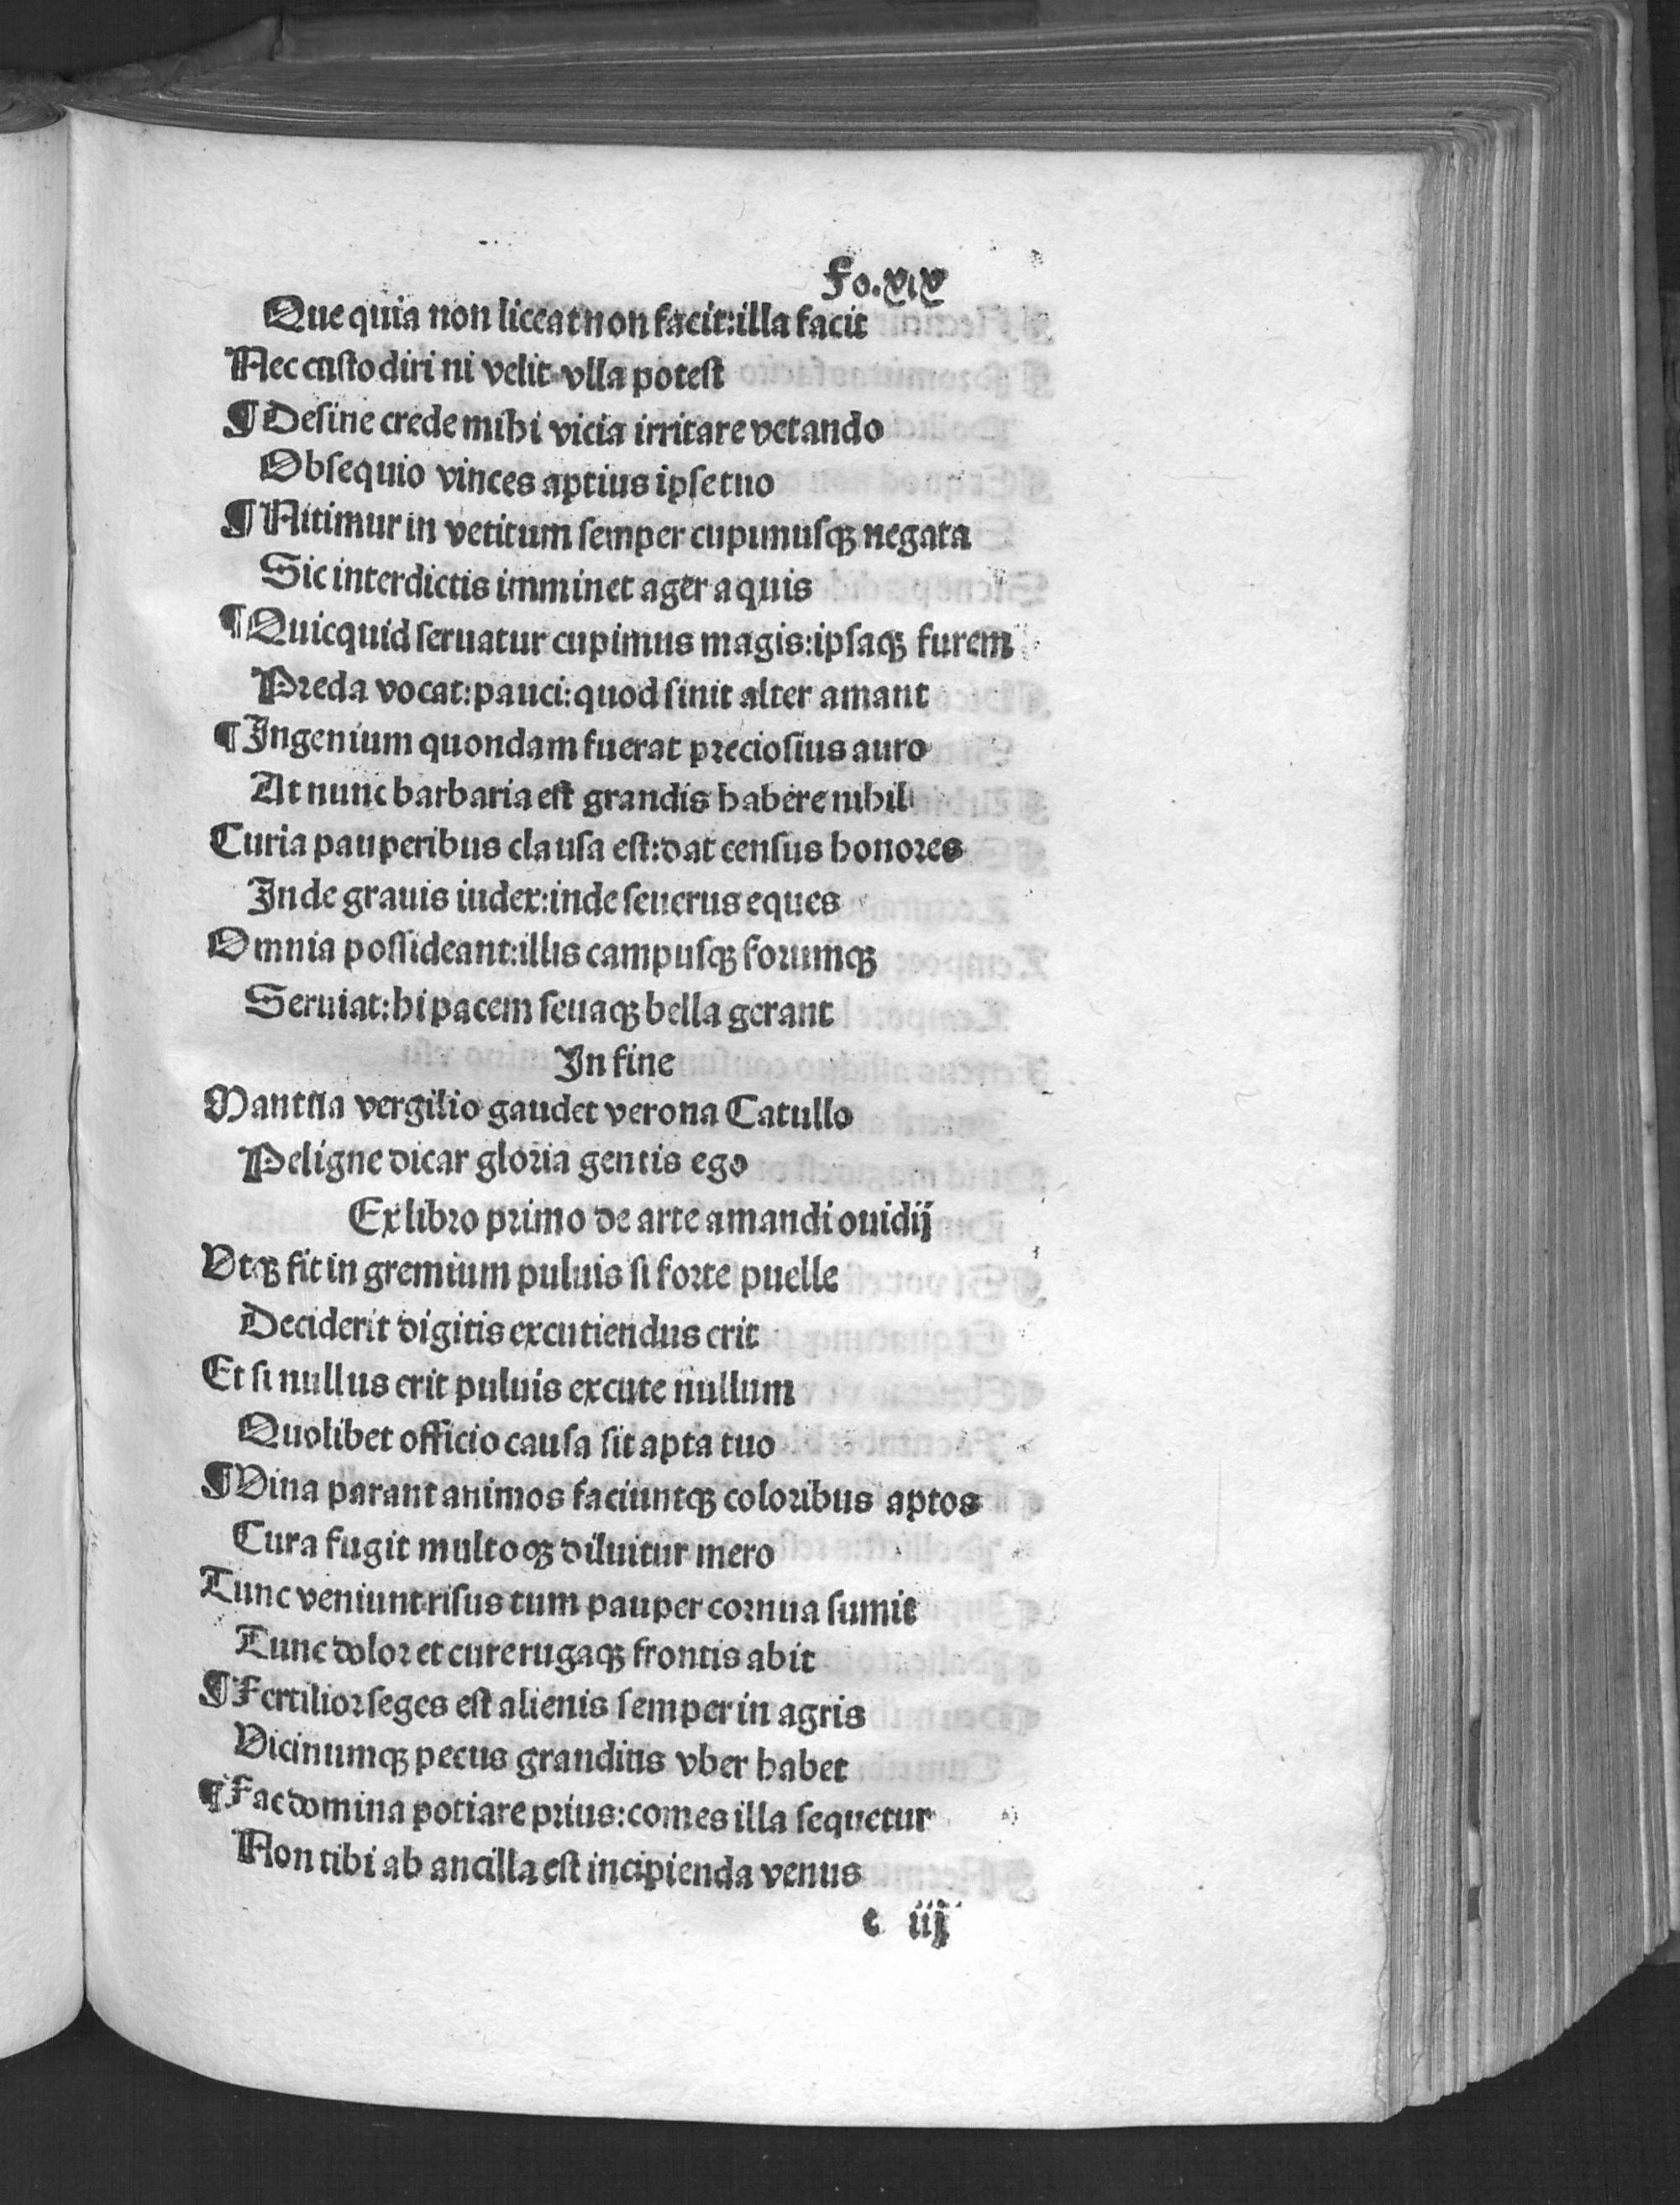 Fo.xix
Que quia non liceat non facit:illa facit
Nec custodiri ni velit vlla potest
¶ Desine crede mihi vicia irritare vetando
Obsequio vinces aptius ipse tuo
¶ Nitimur in vetitum semper cupimusqꝫ negata
Sic interdictis imminet ager aquis
¶ Quicquid seruatur cupimus magis:ipsaqꝫ furem
Preda vocat:pauci:quod sinit alter amant
¶ Ingenium quondam fuerat preciosius auro
At nunc barbaria est grandis habere nihil
Curia pauperibus clausa est:dat census honores
Inde grauis iudex:inde seuerus eques
Omnia possideant:illis campusqꝫ forumqꝫ
Seruiat:hi pacem seuaqꝫ bella gerant
In fine
Mantua vergilio gaudet verona Catullo
Peligne dicar gloria gentis ego
Ex libro primo de arte amandi ouidij
Vtqꝫ fit in gremium puluis si forte puelle
Deciderit digitis excutiendus erit
Et si nullus erit puluis excute nullum
Quolibet officio causa sit apta tuo
¶ Vina parant animos faciuntqꝫ coloribus aptos
Cura fugit multoqꝫ diluitur mero
Tunc veniunt risus tum pauper cornua sumit
Tunc dolor et cure rugaqꝫ frontis abit
¶ Fertilior seges est alienis semper in agris
Vicinumqꝫ pecus grandius vber habet
¶ Fac domina potiare prius:comes illa sequetur
Non tibi ab ancilla est incipienda venus
c iij